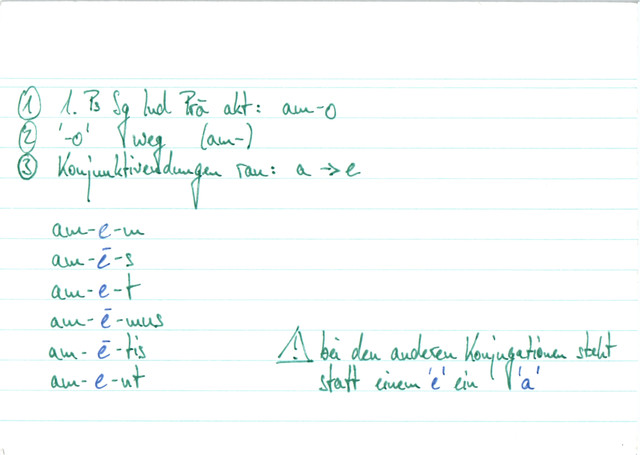 ① 1. Ps Sg Ind Prä akt: am-o
② '-o' weg (am-)
③ Konjunktivendungen ran: a → e
am-e-m
am-ē-s
am-e-t
am-ē-mus
am-ē-tis
am-e-nt
⚠ bei den anderen Konjugationen steht
statt einem 'e' ein 'a'